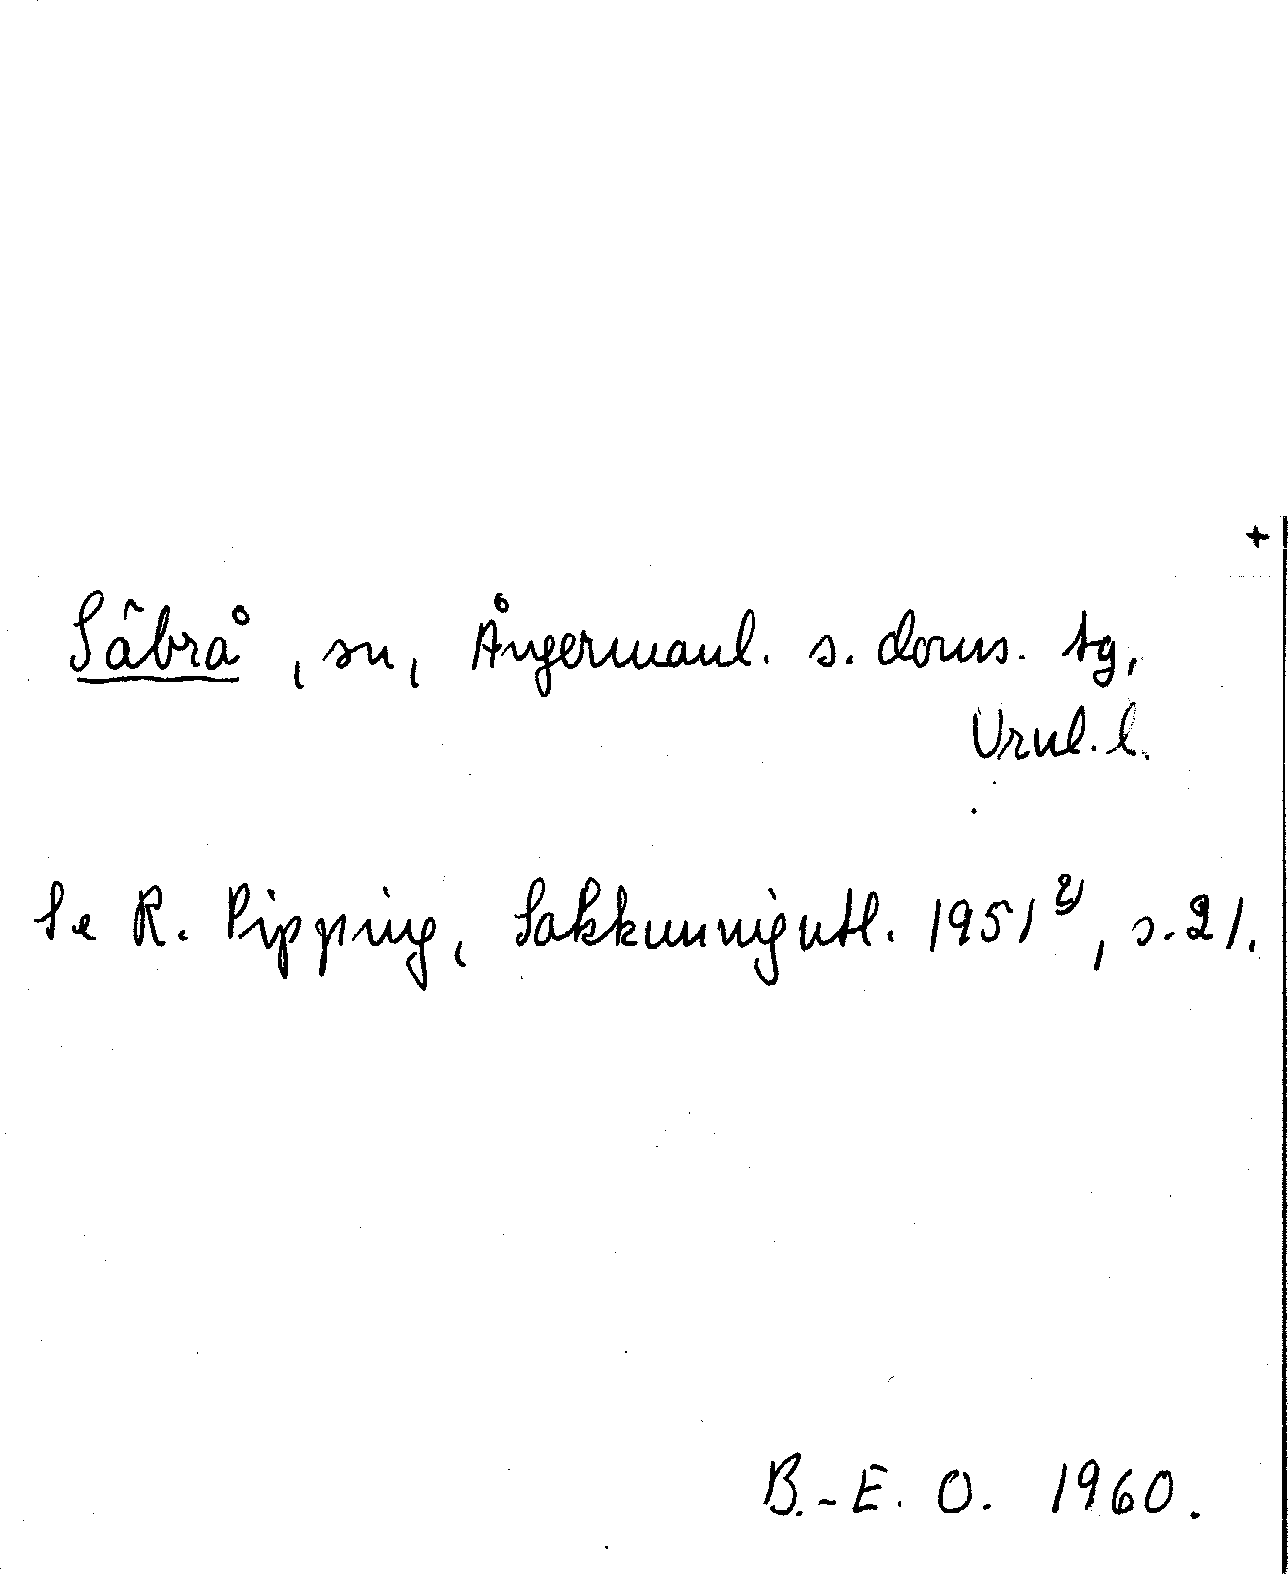 +
Säbrå, sn, Ångermanl. s. doms. tg,
Vrnl. l.
Se R. Pipping, Sakkunnigutl. 1951 2/, s. 21.
B.-E. O. 1960.